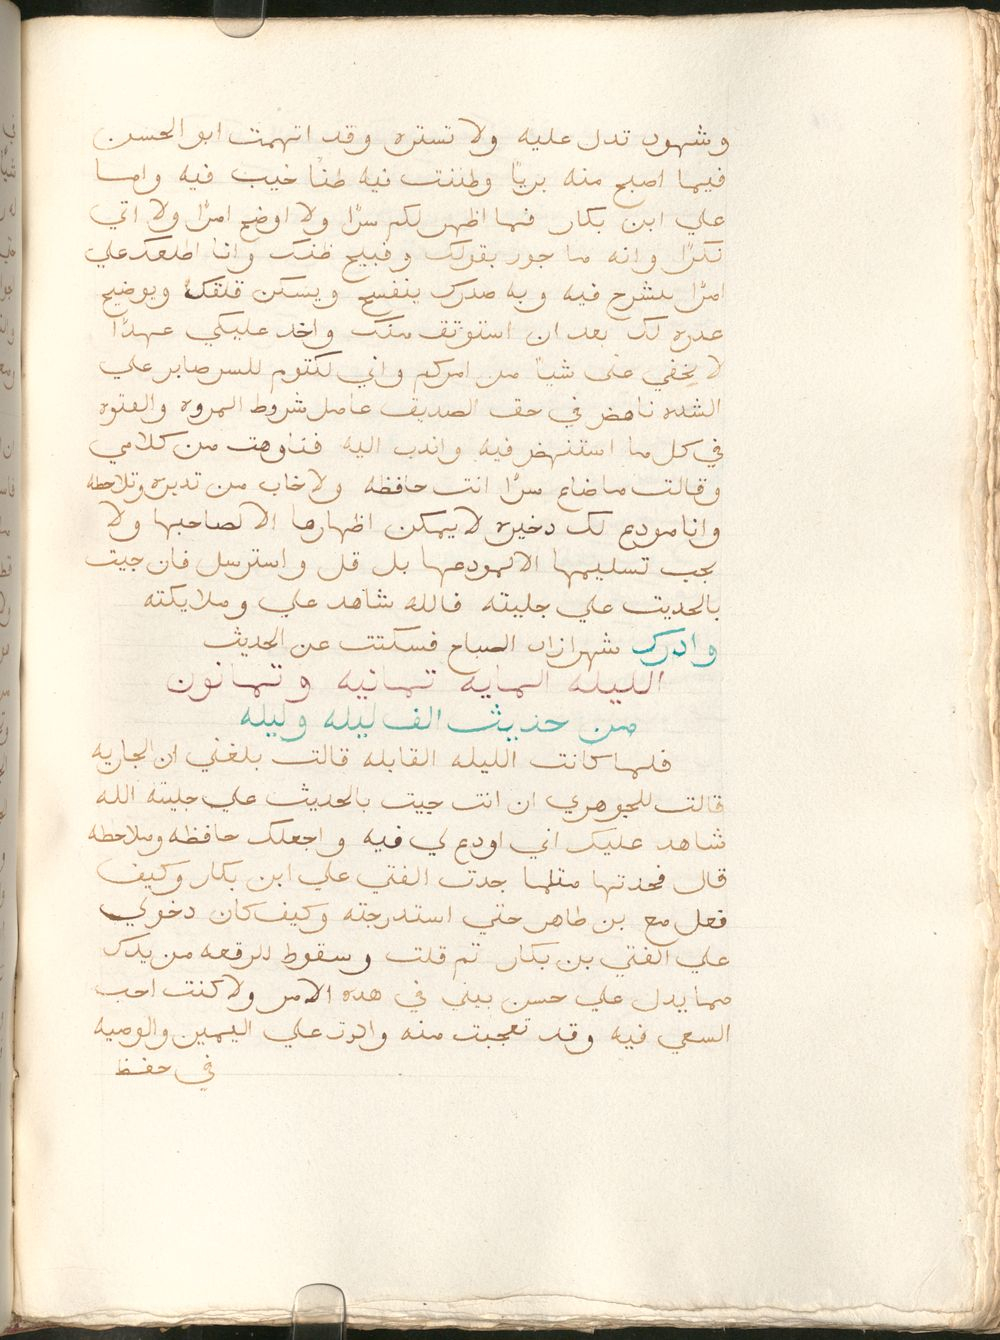 وشهود تدل عليه ولا تستره وقد اتهمت ابو الحسن
فيما اصبح منه برياً وظننت فيه ظناً خيب فيه واما
علي ابن بكار فما اظهر لكم سرًّا ولا اوضح امرًا ولا اتي
نكرًا وانه ما جور بقولك وقبيح ظنك وانا اطلعك علي
امرًا ينشرح فيه وبه صدرك ينفسح ويسكن قلقك ويوضح
عدره لك بعد ان استوثق منك واخد عليكي عهدًا
لا يخفي عنى شياً من امركم واني لكتوم للسر صابر علي
الشده ناهض في حق الصديق عامل شروط المروه والفتوه
في كل ما استنهض فيه واندب اليه فتاوهت من كلامي
وقالت ما ضاع سرًا انت حافظه ولا خاب من تدبره وتلاحظه
وانا مودع لك دخيره لا يمكن اظهارها الا لصاحبها ولا
يجب تسليمها الا لمودعها بل قل واسترسل فان جيت
بالحديث علي جليته فالله شاهد علي وملايكته
وادرك شهرازاد الصباح فسكتت عن الحديث
الليله المايه تمانيه وتمانون
من حديث الف ليله وليله
فلما كانت الليله القابله قالت بلغني ان الجاريه
قالت للجوهري ان انت جيت بالحديث علي جليته الله
شاهد عليك اني اودع لي فيه واجعلك حافظه وملاحظه
قال فحدتها متلما حدت الفتي علي ابن بكار وكيف
فعل مع بن طاهر حتي استدرجته وكيف كان دخولي
علي الفتي بن بكار تم قلت وسقوط الرقعه من يدك
مما يدل علي حسن بيني في هده الامر ولا كنت احب
السعي فيه وقد تعجبت منه والرت علي اليمين والوصيه
في حفظ